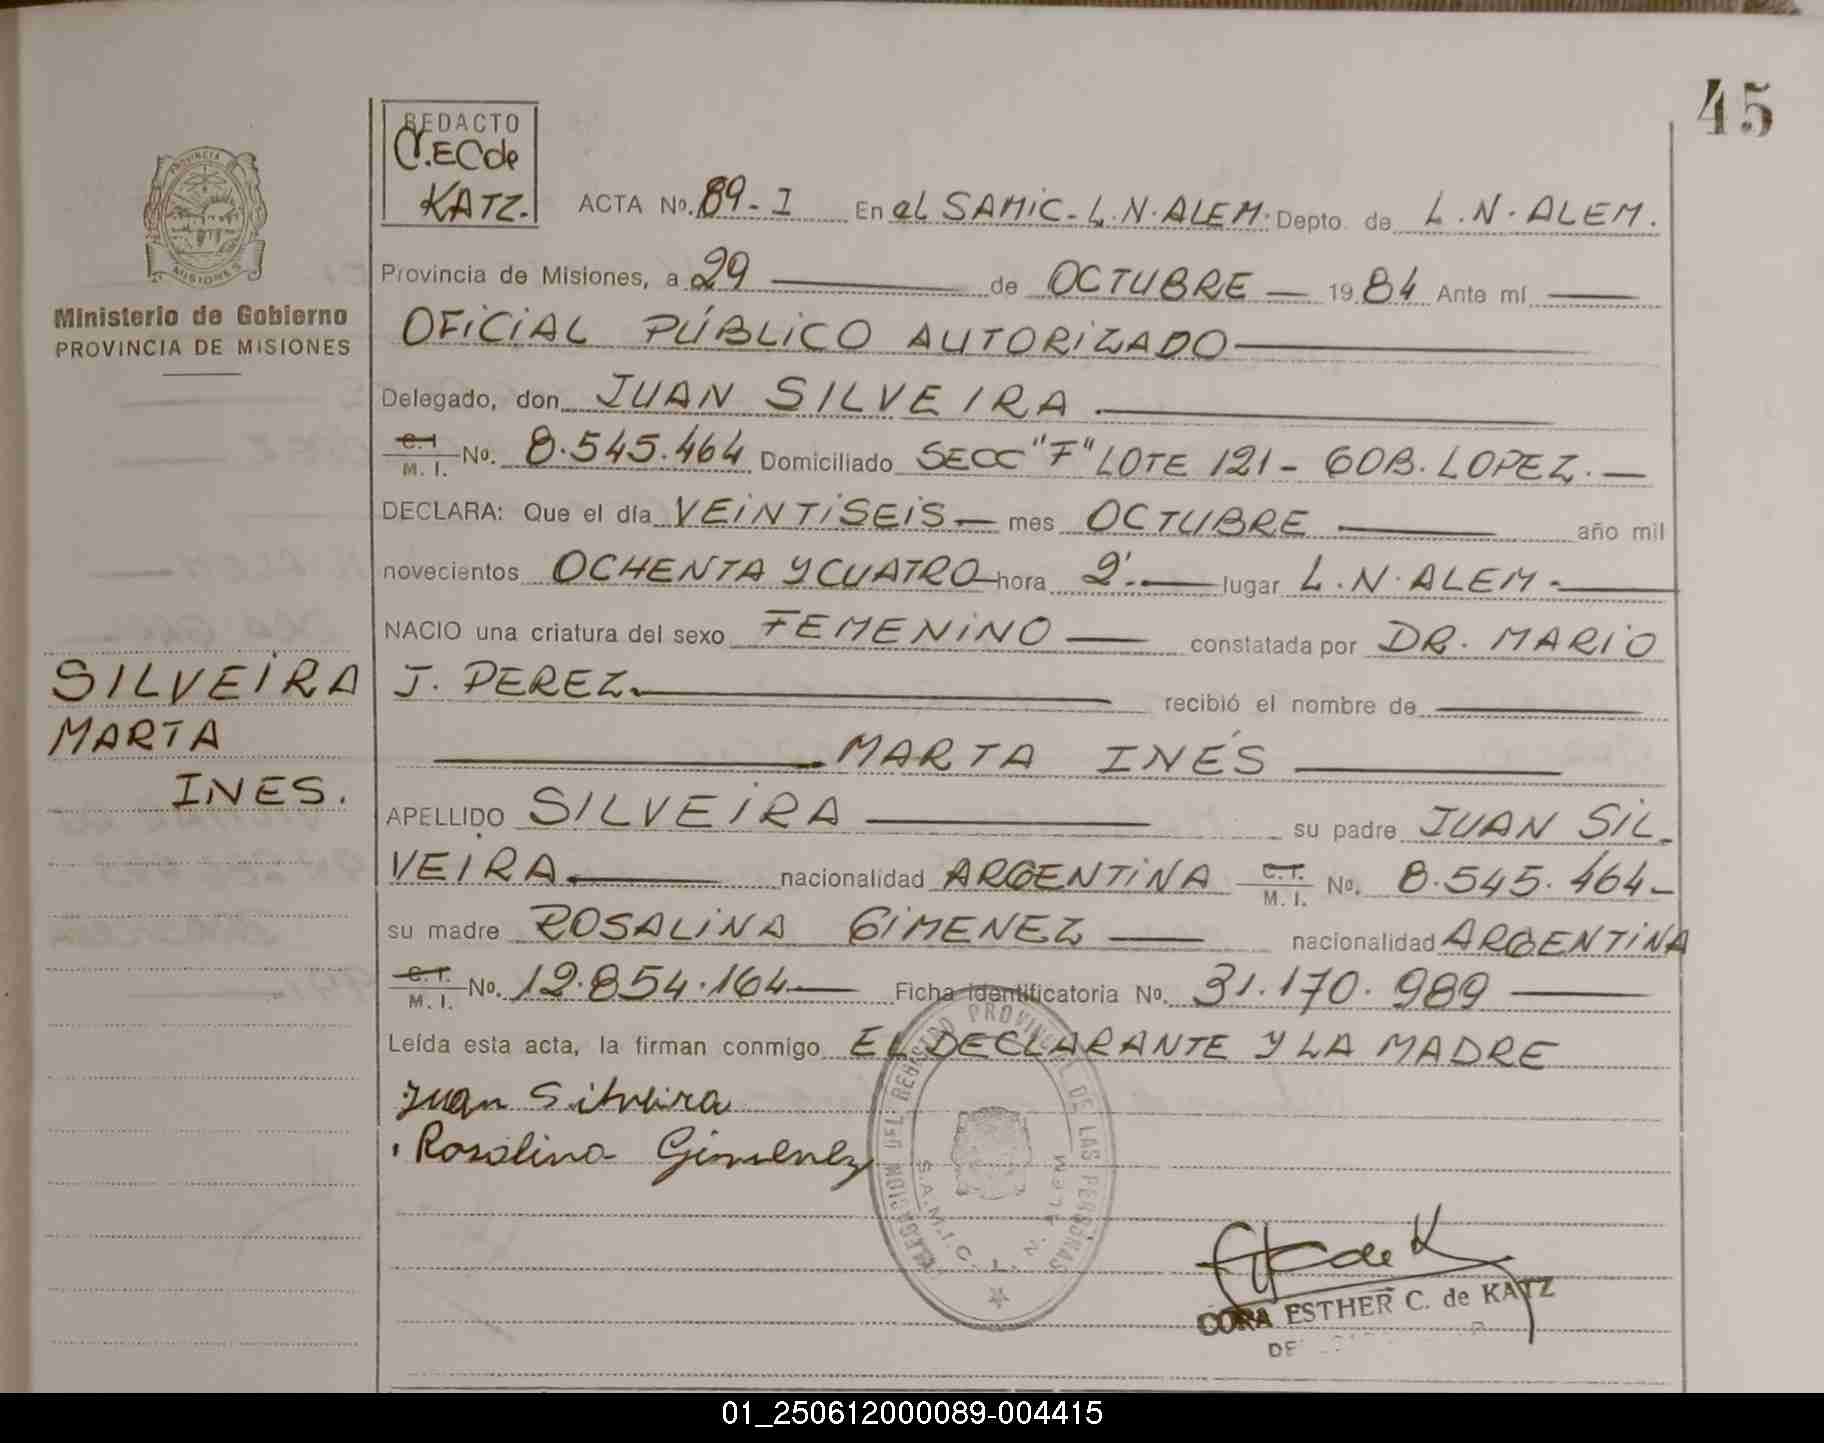 45
REDACTO
C.EC de
KATZ.
PROVINCIA
MISIONES
Ministerio de Gobierno
PROVINCIA DE MISIONES
ACTA No. 89-I En el SAMIC-L.N.ALEM. Depto. de L.N.ALEM.
Provincia de Misiones, a 29 de OCTUBRE 1984 Ante mí
OFICIAL PÚBLICO AUTORIZADO
Delegado, don JUAN SILVEIRA
C.I M. I. No. 8.545.464 Domiciliado SECC "F" LOTE 121 - GOB. LOPEZ.
DECLARA: Que el día VEINTISEIS mes OCTUBRE año mil
novecientos OCHENTA Y CUATRO hora 2'. lugar L.N.ALEM.
NACIO una criatura del sexo FEMENINO constatada por DR. MARIO
J. PEREZ recibió el nombre de
MARTA INÉS
APELLIDO SILVEIRA su padre JUAN SIL-
VEIRA nacionalidad ARGENTINA C.I. M. I. No. 8.545.464-
su madre ROSALINA GIMENEZ nacionalidad ARGENTINA
C.I. M. I. No. 12.854.164 Ficha identificatoria No. 31.170.989
Leída esta acta, la firman conmigo EL DECLARANTE Y LA MADRE
SILVEIRA
MARTA
INES.
Juan Silveira
Rosalina Gimenez
DELEGACION DEL REGISTRO PROVINCIAL DE LAS PERSONAS
S.A.M.I.C. L. N. ALEM
CORA ESTHER C. de KATZ
01_250612000089-004415